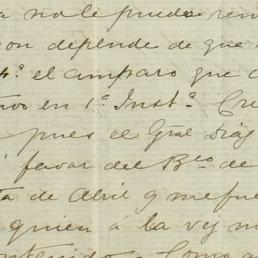 a no le puedo rem
on depende de que
pª. el amparo que c
tivo en 1ª Instª. Cre
pues el Gral Diaz
favor del Bco de
ta de Abril q me fue
quien á la vez m
ontenido. Como a